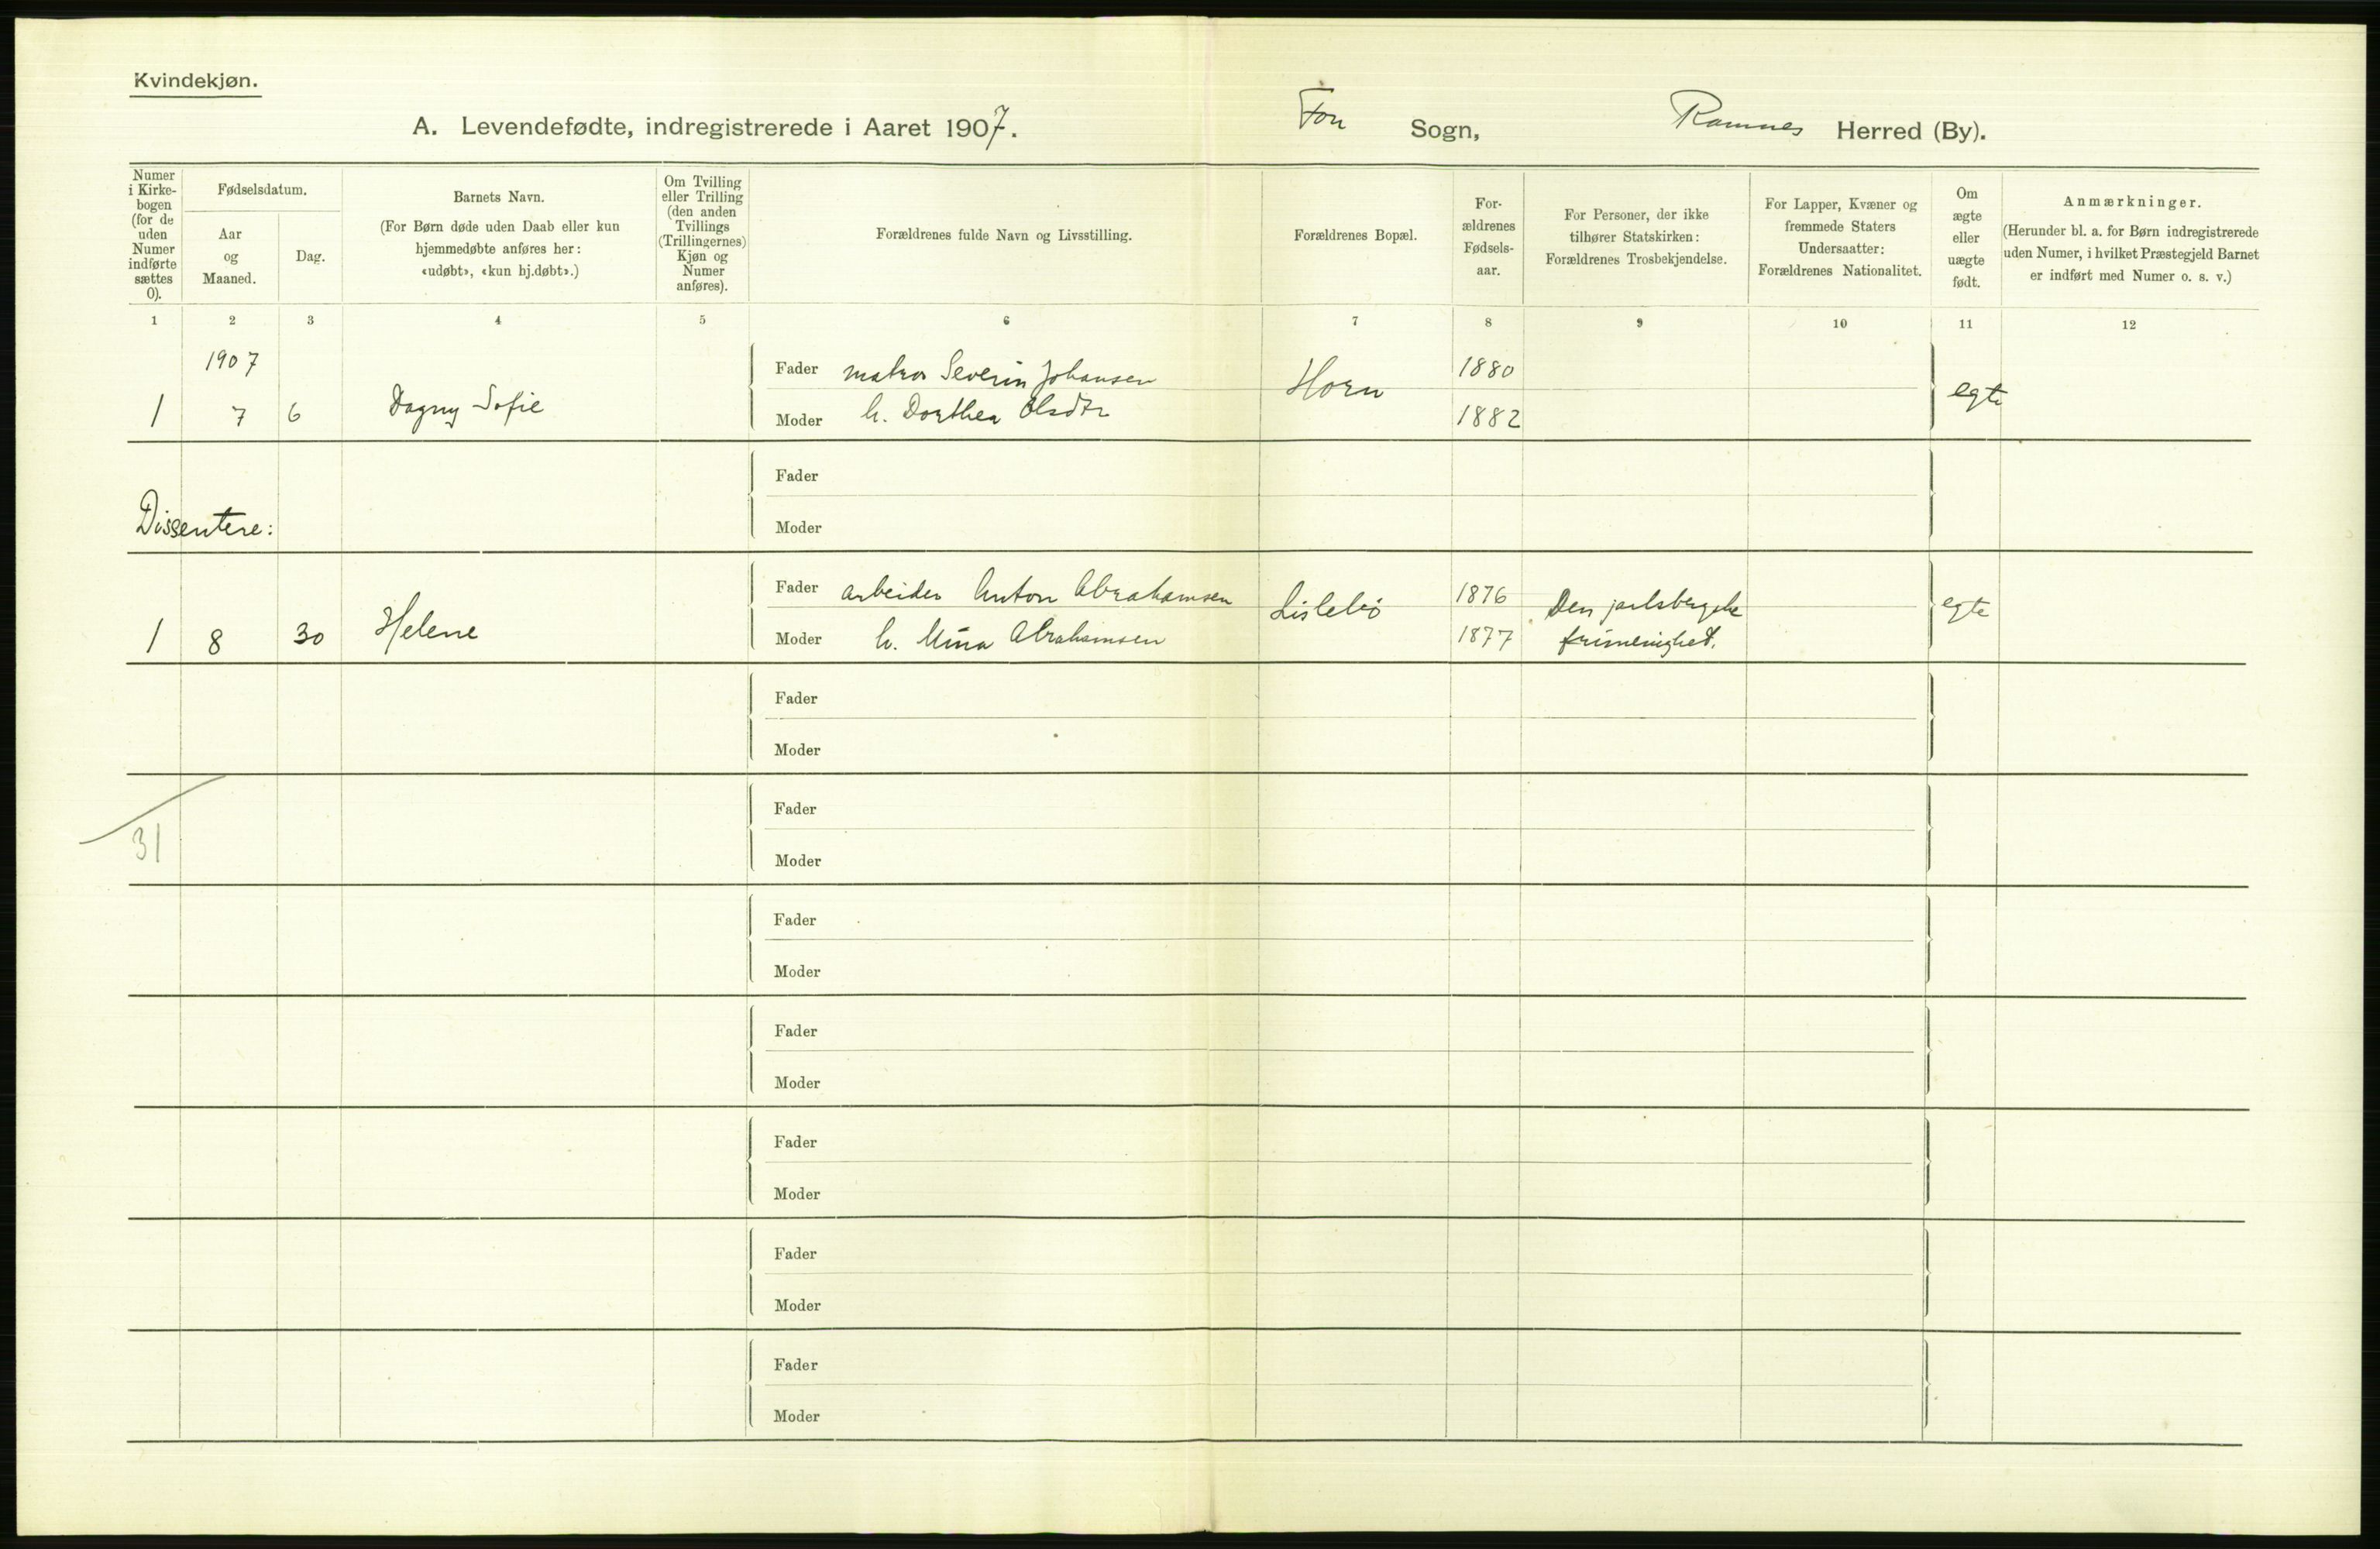 Kvindekjøn.
A. Levendefødte, indregistrerede i Aaret 1907.
Fon Sogn,
Ramnes Herred (By).
Numer
i Kirke-
bogen
(for de
uden
Numer
indførte
sættes
0).
Fødselsdatum.
Aar
og
Maaned.
Dag.
Barnets Navn.
(For Børn døde uden Daab eller kun
hjemmedøbte anføres her:
«udøbt», «kun hj.døbt».)
Om Tvilling
eller Trilling
(den anden
Tvillings
(Trillingernes)
Kjøn og
Numer
anføres).
Forældrenes fulde Navn og Livsstilling.
Forældrenes Bopæl.
For-
ældrenes
Fødsels-
aar.
For Personer, der ikke
tilhører Statskirken:
Forældrenes Trosbekjendelse.
For Lapper, Kvæner og
fremmede Staters
Undersaatter:
Forældrenes Nationalitet.
Om
ægte
eller
uægte
født.
Anmærkninger.
(Herunder bl. a. for Børn indregistrerede
uden Numer, i hvilket Præstegjeld Barnet
er indført med Numer o. s. v.)
1 2 3 4 5 6 7 8 9 10 11 12
1907
Fader matros Severin Johansen Horn 1880
1 7 6 Dagny Sofie egte
Moder h. Dorthea Olsdtr 1882
Fader
Dissentere:
Moder
Fader arbeider Anton Abrahamsen Lislebö 1876 Den jarlsbergske egte
1 8 30 Helene
Moder h. Mina Abrahamsen 1877 frimenighed.
Fader
Moder
Fader
31
Moder
Fader
Moder
Fader
Moder
Fader
Moder
Fader
Moder
Fader
Moder